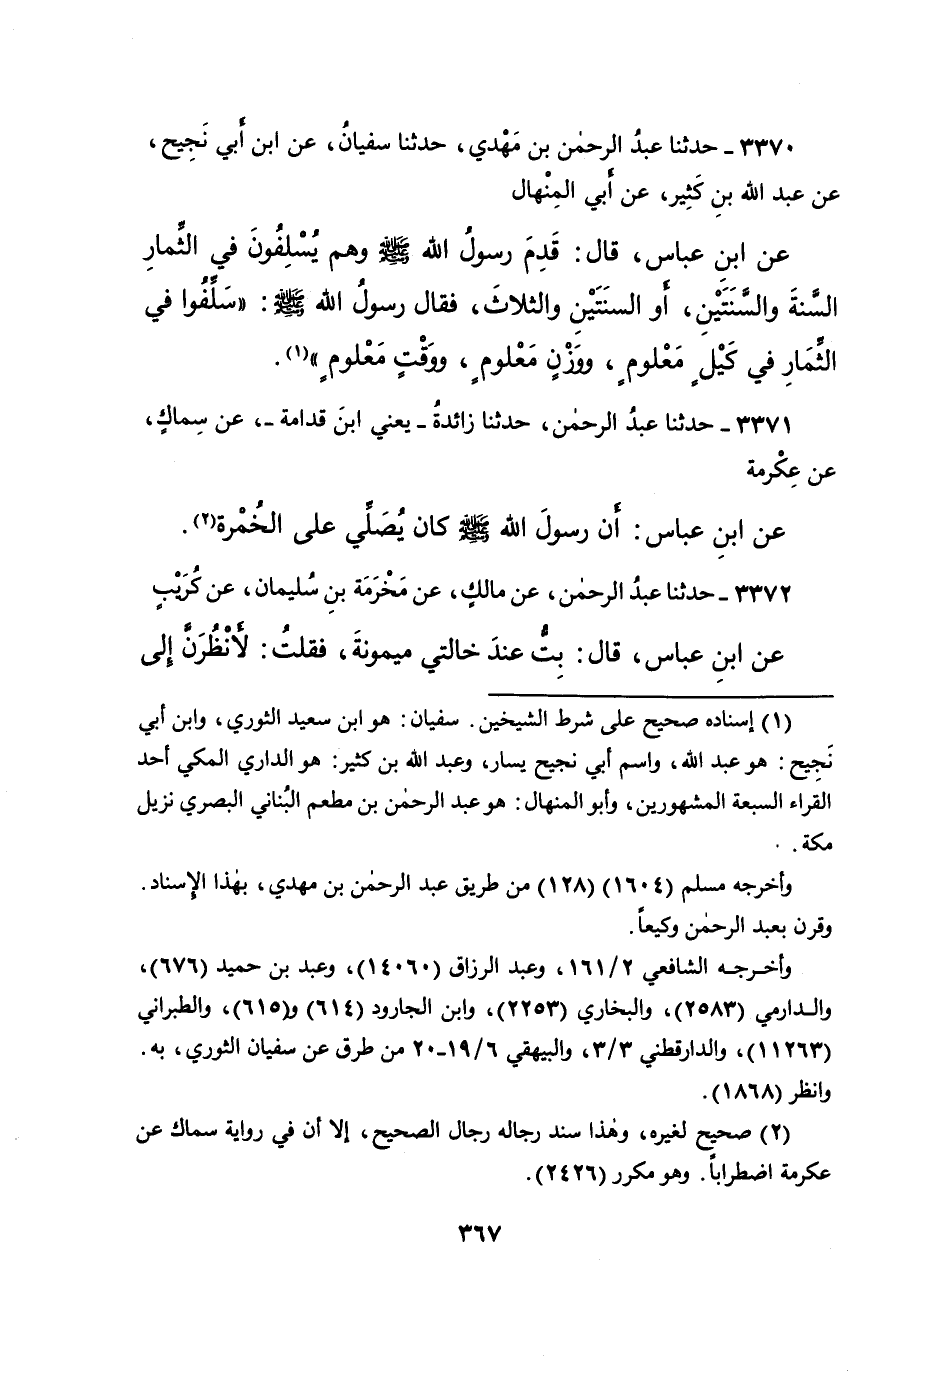 ٣٣٧٠ ـ حدثنا عبدُ الرحمٰن بن مَهْدي، حدثنا سفيانُ، عن ابن أَبي نَجِيح،
عن عبد الله بنِ كَثِير، عن أَبي المِنْهال
عن ابنِ عباس، قال: قَدِمَ رسولُ الله ﷺ وهم يُسْلِفُونَ في الثِّمارِ
السَّنةَ والسَّنَتَيْنِ، أَو السنَتَيْنِ والثلاثَ، فقال رسولُ الله ﷺ: «سَلِّفُوا في
الثِّمَارِ في كَيْلٍ مَعْلومٍ، ووَزْنٍ مَعْلومٍ، ووَقْتٍ مَعْلومٍ»(١).
٣٣٧١ ـ حدثنا عبدُ الرحمٰن، حدثنا زائدةُ ـ يعني ابنَ قدامة ـ، عن سِماكٍ،
عن عِكْرمة
عن ابنِ عباس: أَن رسولَ الله ﷺ كان يُصَلِّي على الخُمْرة(٢).
٣٣٧٢ ـ حدثنا عبدُ الرحمٰن، عن مالكٍ، عن مَخْرَمَة بنِ سُليمان، عن كُرَيْبٍ
عن ابنِ عباس، قال: بِتُّ عندَ خالتي ميمونةَ، فقلتُ: لَأَنْظُرَنَّ إِلى
(١) إسناده صحيح على شرط الشيخين. سفيان: هو ابن سعيد الثوري، وابن أبي
نَجِيح: هو عبد الله، واسم أبي نجيح يسار، وعبد الله بن كثير: هو الداري المكي أحد
القراء السبعة المشهورين، وأبو المنهال: هو عبد الرحمٰن بن مطعم البُناني البصري نزيل
مكة.
وأخرجه مسلم (١٦٠٤) (١٢٨) من طريق عبد الرحمٰن بن مهدي، بهٰذا الإسناد.
وقرن بعبد الرحمٰن وكيعاً.
وأخرجه الشافعي ١٦١/٢، وعبد الرزاق (١٤٠٦٠)، وعبد بن حميد (٦٧٦)،
والدارمي (٢٥٨٣)، والبخاري (٢٢٥٣)، وابن الجارود (٦١٤) و(٦١٥)، والطبراني
(١١٢٦٣)، والدارقطني ٣/٣، والبيهقي ١٩/٦-٢٠ من طرق عن سفيان الثوري، به.
وانظر (١٨٦٨).
(٢) صحيح لغيره، وهٰذا سند رجاله رجال الصحيح، إلا أن في رواية سماك عن
عكرمة اضطراباً. وهو مكرر (٢٤٢٦).
٣٦٧